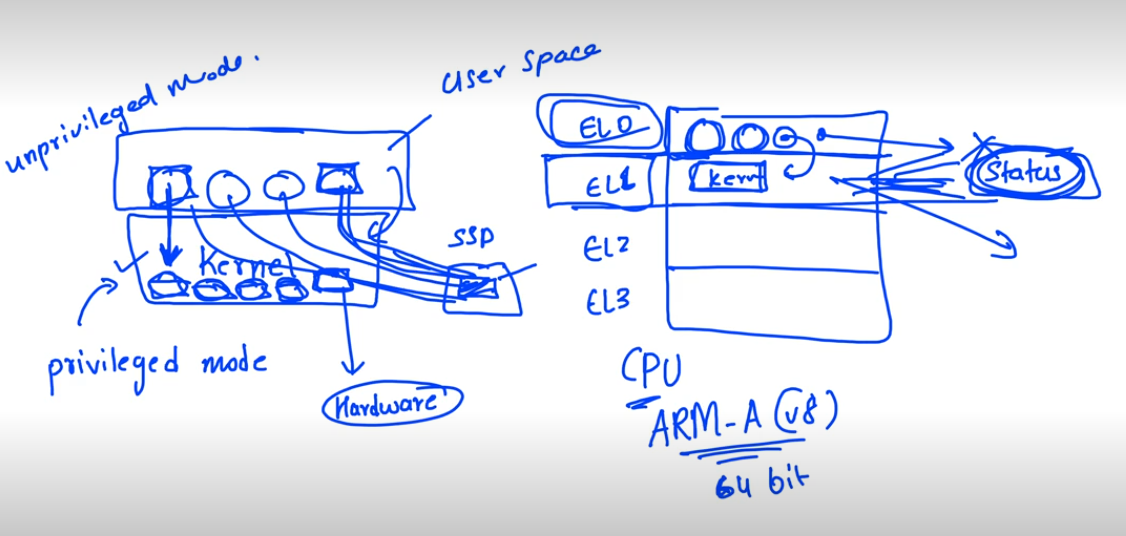 unprivileged mode.
User space
Kernel
SSD
privileged mode
Hardware
EL0
EL1
Kern
Status
EL2
EL3
CPU
ARM-A (v8)
64 bit